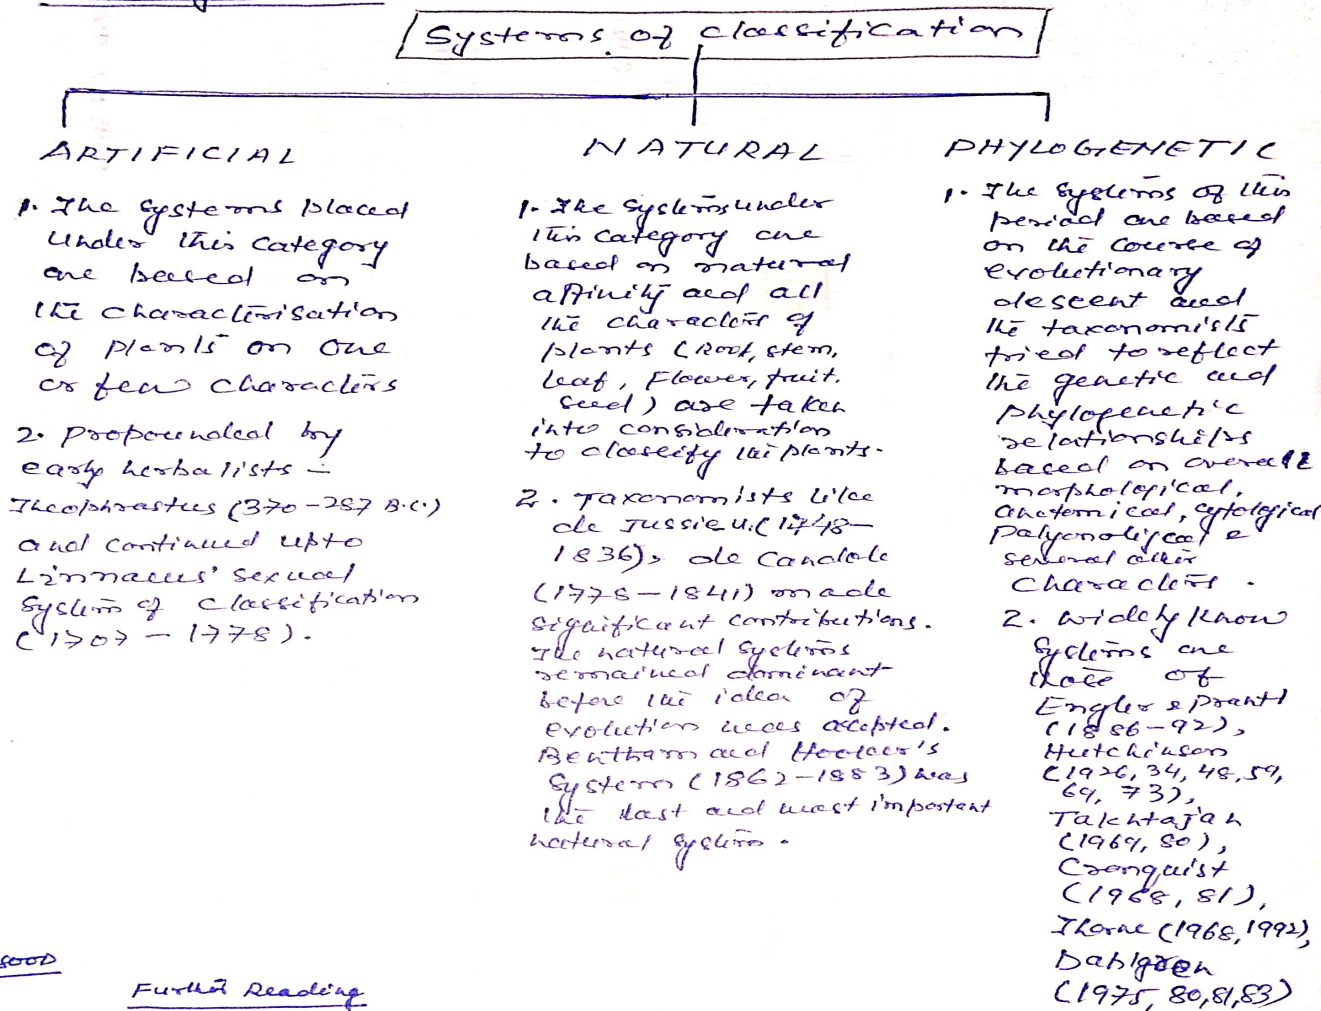 Systems of classification
ARTIFICIAL
1. The systems placed
under this category
are based on
the characterisation
of plants on one
or few characters
2. Propounded by
early herbalists –
Theophrastus (370-287 B.C.)
and continued upto
Linnaeus' sexual
system of classification
(1707 – 1778).
NATURAL
1. The systems under
this category are
based on natural
affinity and all
the characters of
plants (Root, stem,
leaf, Flower, fruit.
seed) are taken
into consideration
to classify the plants.
2. Taxonomists like
de Jussieu (1748–
1836), de Candole
(1778–1841) made
significant contributions.
The natural systems
remained dominant
before the idea of
evolution was accepted.
Bentham and Hooker's
system (1862–1883) was
the last and most important
natural system.
PHYLOGENETIC
1. The systems of this
period are based
on the course of
evolutionary
descent and
the taxonomists
tried to reflect
the genetic and
phylogenetic
relationships
based on overall
morphological,
anatomical, cytological
Palynological &
several other
characters.
2. widely know
systems are
those of
Engler & Prantl
(1886–92),
Hutchinson
(1926, 34, 48, 59,
69, 73),
Takhtajan
(1969, 80),
Cronquist
(1968, 81),
Thorne (1968, 1992),
Dahlgren
(1975, 80, 81, 83)
SOOD
Further Reading